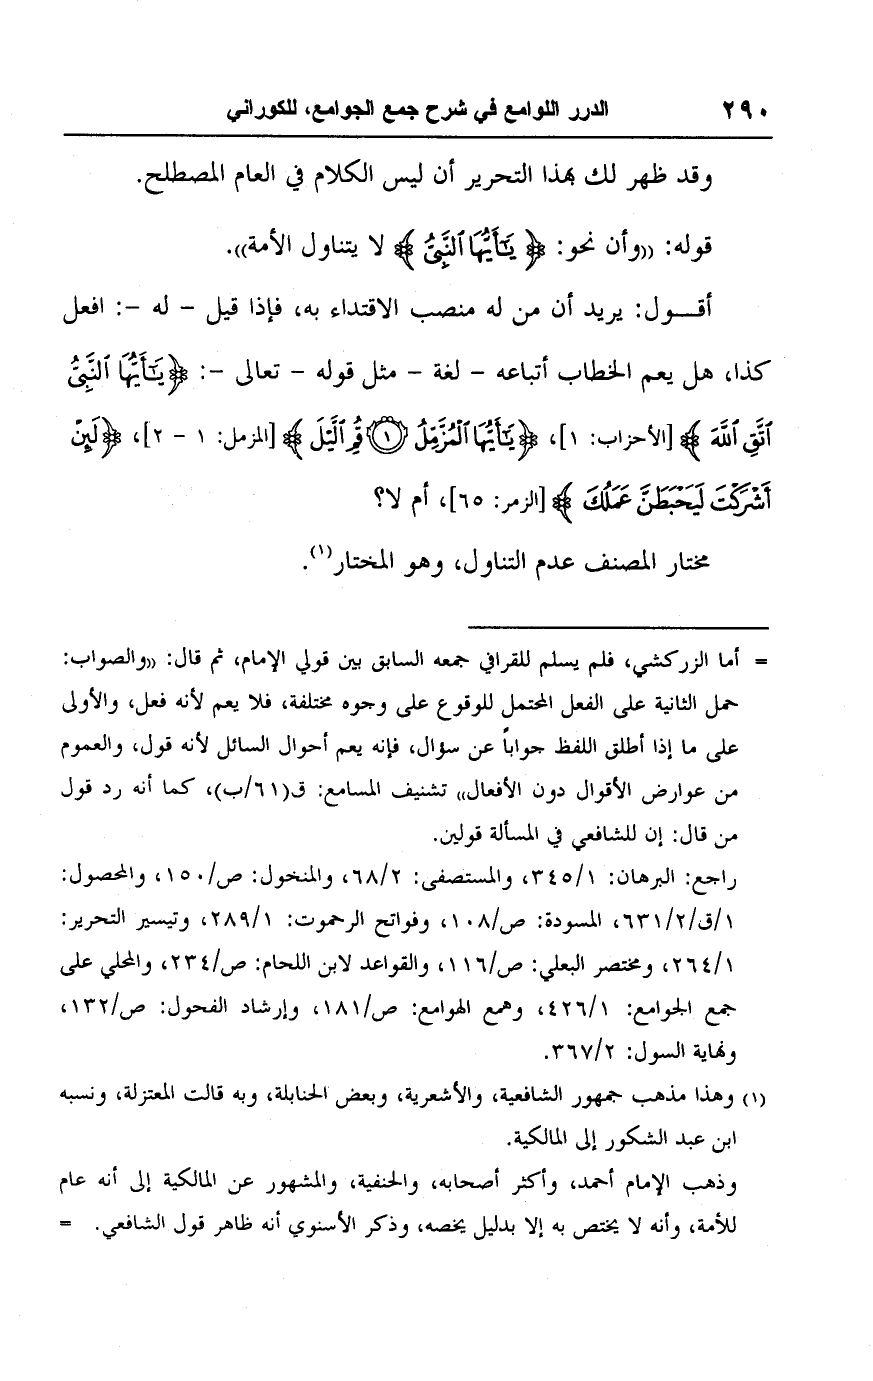 ٢٩٠ الدرر اللوامع في شرح جمع الجوامع، للكوراني
وقد ظهر لك بهذا التحرير أن ليس الكلام في العام المصطلح.
قوله: ((وأن نحو: ﴿ يَٰٓأَيُّهَا ٱلنَّبِىُّ ﴾ لا يتناول الأمة)).
أقـــول: يريد أن من له منصب الاقتداء به، فإذا قيل - له -: افعل
كذا، هل يعم الخطاب أتباعه - لغة - مثل قوله - تعالى -: ﴿يَٰٓأَيُّهَا ٱلنَّبِىُّ
ٱتَّقِ ٱللَّهَ ﴾ [الأحزاب: ١]، ﴿يَٰٓأَيُّهَا ٱلْمُزَّمِّلُ ١ قُمِ ٱلَّيْلَ ﴾ [المزمل: ١ - ٢]، ﴿لَئِنْ
أَشْرَكْتَ لَيَحْبَطَنَّ عَمَلُكَ ﴾ [الزمر: ٦٥]، أم لا؟
مختار المصنف عدم التناول، وهو المختار(١).
= أما الزركشي، فلم يسلم للقرافي جمعه السابق بين قولي الإمام، ثم قال: ((والصواب:
حمل الثانية على الفعل المحتمل للوقوع على وجوه مختلفة، فلا يعم لأنه فعل، والأولى
على ما إذا أطلق اللفظ جواباً عن سؤال، فإنه يعم أحوال السائل لأنه قول، والعموم
من عوارض الأقوال دون الأفعال)) تشنيف المسامع: ق(٦١/ب)، كما أنه رد قول
من قال: إن للشافعي في المسألة قولين.
راجع: البرهان: ٣٤٥/١، والمستصفى: ٦٨/٢، والمنخول: ص/١٥٠، والمحصول:
١/ق/٦٣١/٢، المسودة: ص/١٠٨، وفواتح الرحموت: ٢٨٩/١، وتيسير التحرير:
٢٦٤/١، ومختصر البعلي: ص/١١٦، والقواعد لابن اللحام: ص/٢٣٤، والمحلي على
جمع الجوامع: ٤٢٦/١، وهمع الهوامع: ص/١٨١، وإرشاد الفحول: ص/١٣٢،
ونهاية السول: ٣٦٧/٢.
(١) وهذا مذهب جمهور الشافعية، والأشعرية، وبعض الحنابلة، وبه قالت المعتزلة، ونسبه
ابن عبد الشكور إلى المالكية.
وذهب الإمام أحمد، وأكثر أصحابه، والحنفية، والمشهور عن المالكية إلى أنه عام
للأمة، وأنه لا يختص به إلا بدليل يخصه، وذكر الأسنوي أنه ظاهر قول الشافعي. =